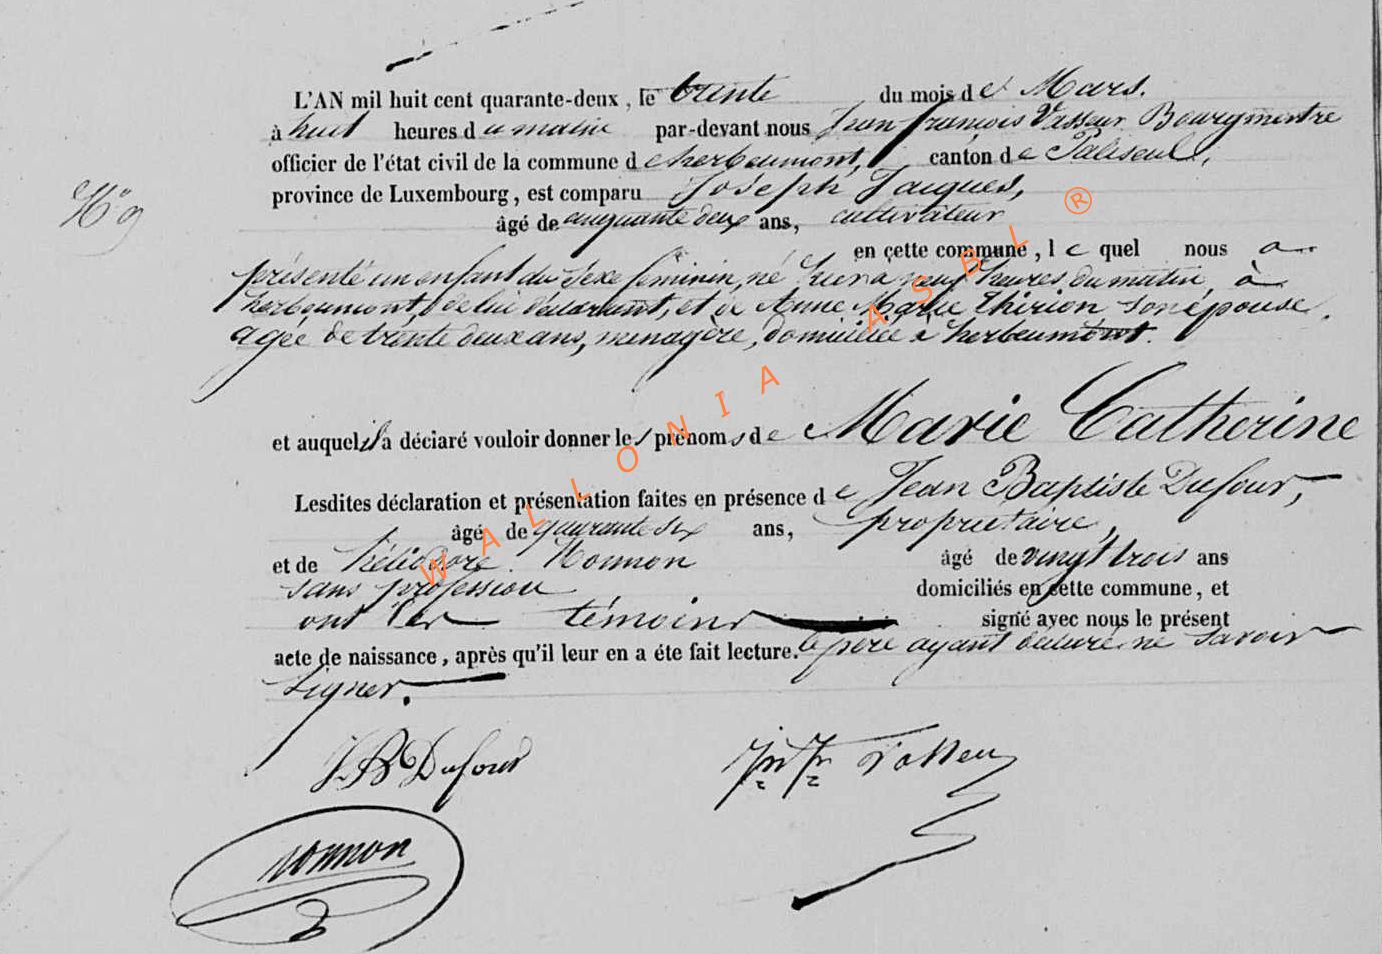 L'AN mil huit cent quarante-deux, le trente du mois de Mars.
à huit heures du matin par-devant nous Jean françois Vasseur Bourgmestre
officier de l'état civil de la commune de herbeumont, canton de Paliseul,
province de Luxembourg, est comparu Joseph Jacques,
N° 9
âgé de cinquante deux ans, cultivateur
en cette commune, le quel nous a
présenté un enfant du sexe feminin, né hier a neuf heures du matin, à
herbeumont, de lui déclarant, et de Anne Marie Thirion son épouse,
agée de trente deux ans, menagère, domiciliée à herbeumont.
et auquel il a déclaré vouloir donner les prénoms de Marie Catherine
Lesdites déclaration et présentation faites en présence de Jean Baptiste Dufour,
âgé de quarante six ans, propriétaire,
et de héliodore Nonnon âgé de vingt trois ans
sans profession domiciliés en cette commune, et
ont les témoins signé avec nous le présent
acte de naissance, après qu'il leur en a éte fait lecture. le père ayant déclaré ne savoir
signer.
J B Dufour
Jn Fr Vasseur
nonnon
WALLONIA ASBL ®